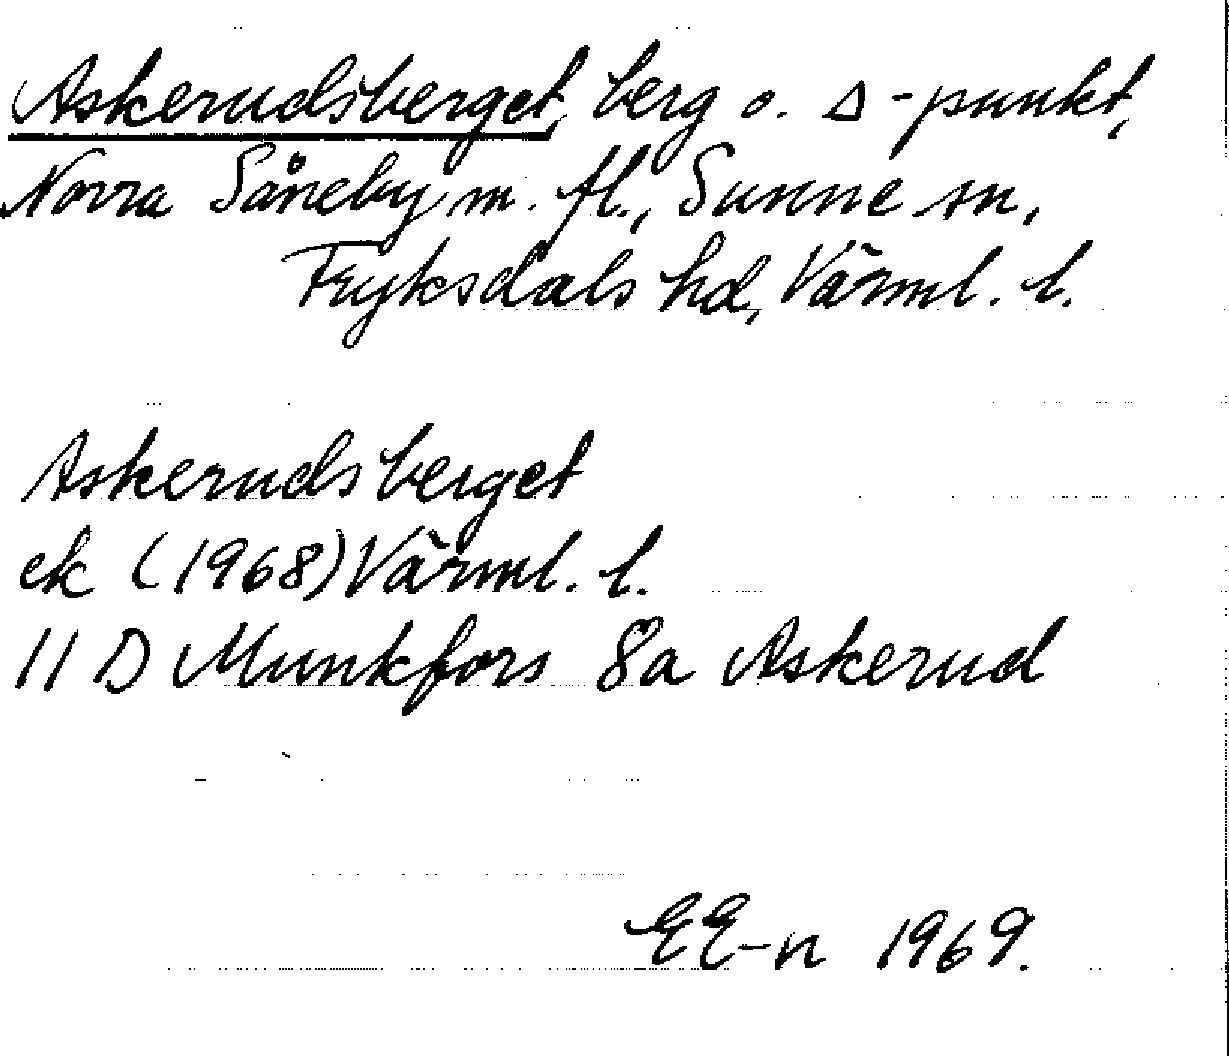 Askerudsberget, berg o. Δ-punkt,
Norra Såneby m. fl., Sunne sn,
Fryksdals hd, Värml. l.
Askerudsberget
ek (1968) Värml. l.
11 D Munkfors 8a Askerud
EE-n 1969.